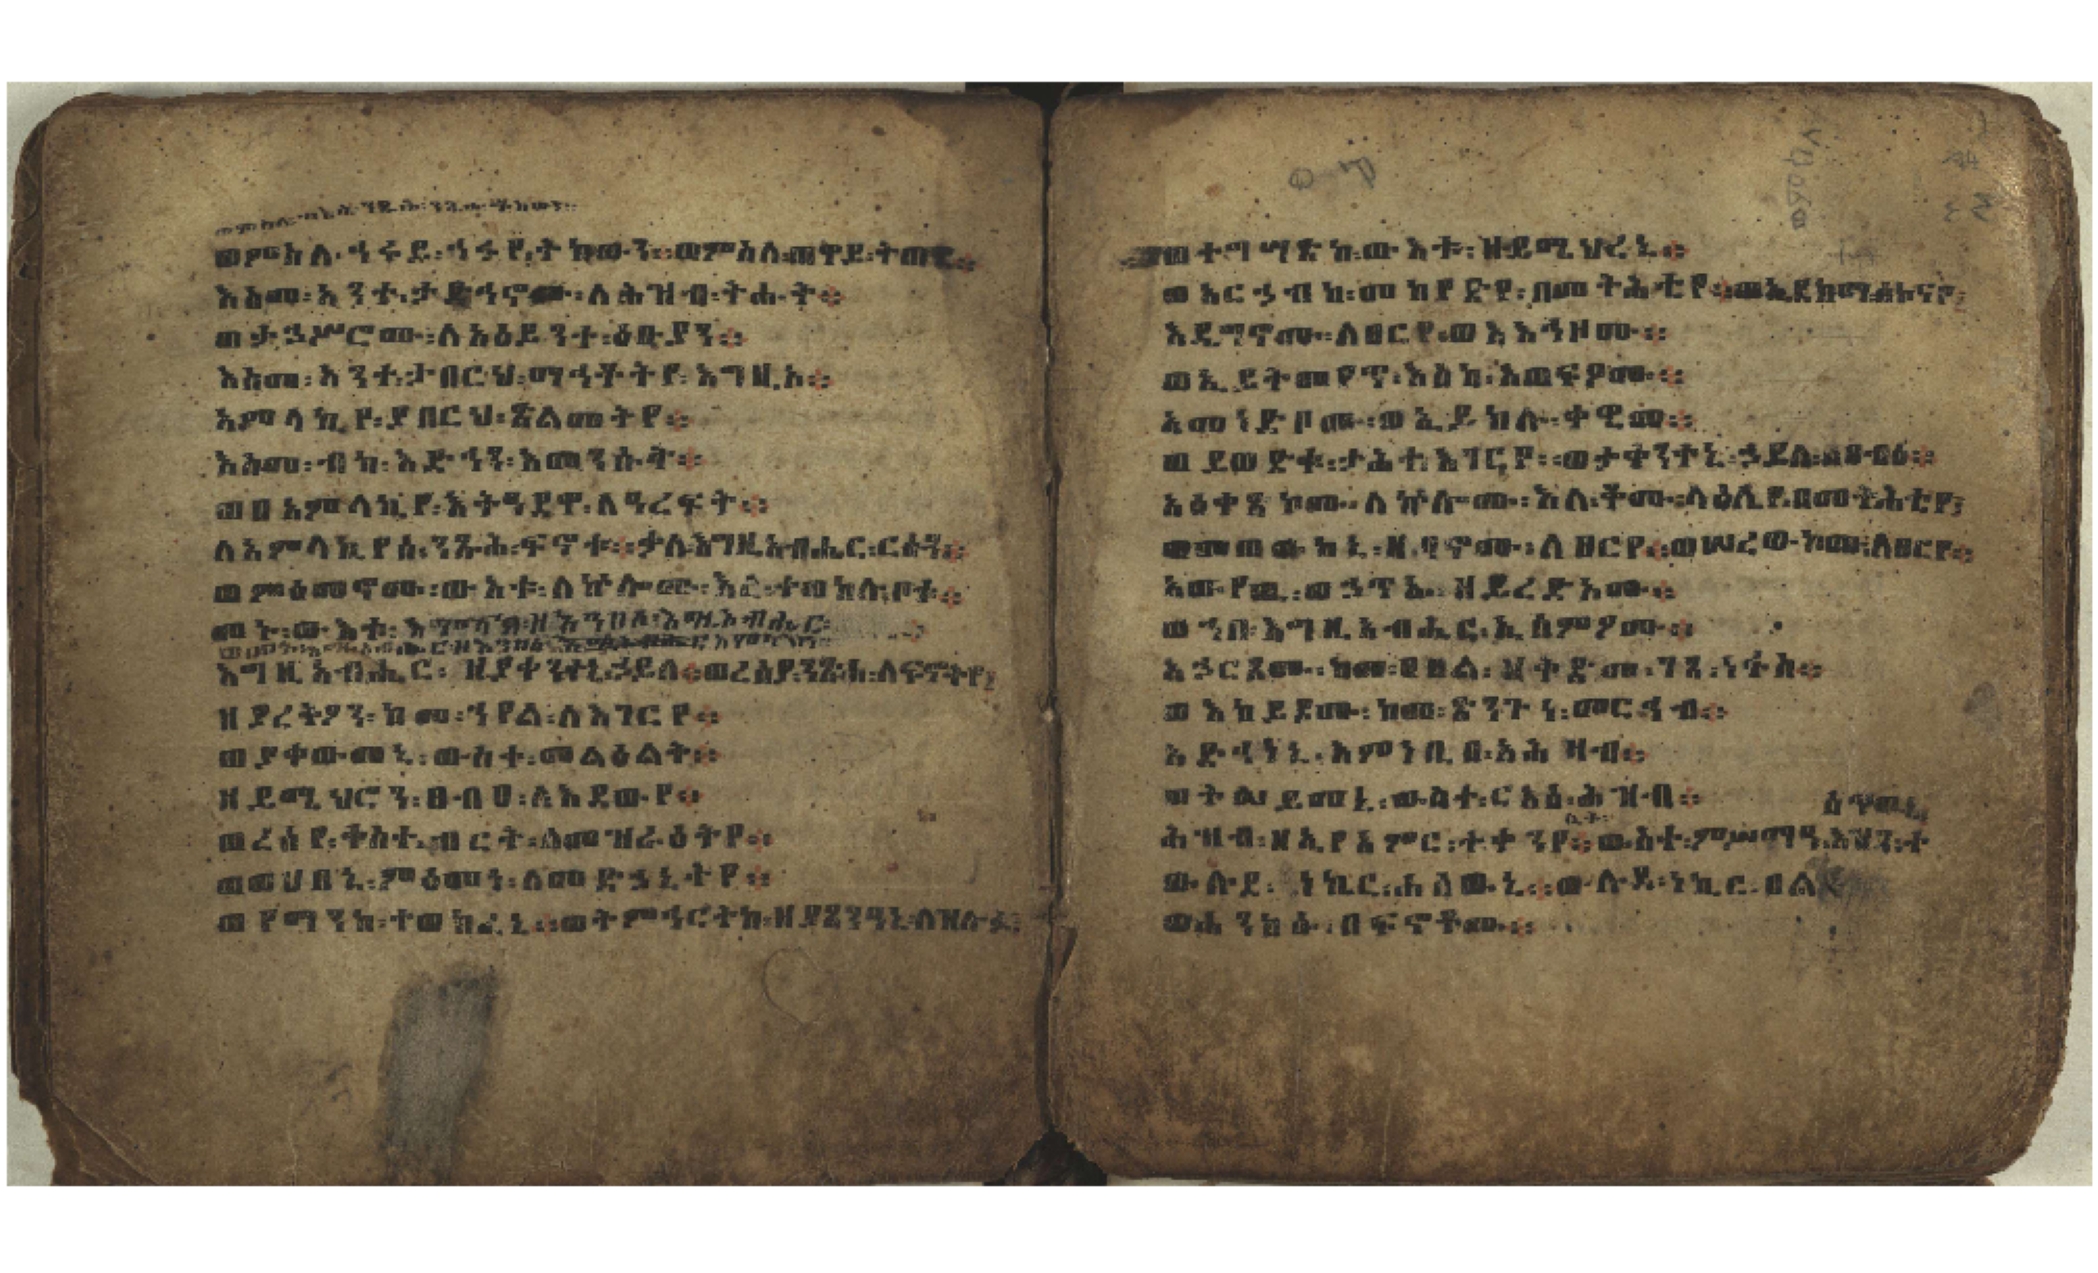 ወምስለ፡ ኅሩይ፡ ኅሩየ፡ ትከውን። ወምስለ፡ ጠዋይ፡ ትጠዊ።
እስመ፡ አንተ፡ ታድኅኖሙ፡ ለሕዝብ፡ ትሑት።
ወታኃሥሮሙ፡ ለአዕይንተ፡ ዕቡያን።
እስመ፡ አንተ፡ ታበርህ፡ ማኅቶትየ፡ እግዚኦ።
አምላኪየ፡ ያበርህ፡ ጽልመትየ።
እስመ፡ ብከ፡ እድኅን፡ እመንሱት።
ወበአምላኪየ፡ እትዓደዋ፡ ለዓረፍት።
ለአምላኪየሰ፡ ንጹሕ፡ ፍኖቱ። ቃሉ፡ ለእግዚአብሔር፡ ርሱን።
ወምዕመኖሙ፡ ውእቱ፡ ለኵሎሙ፡ እለ፡ ተወከሉ፡ ቦቱ።
እግዚአብሔር፡ ዘያቀንተኒ፡ ኃይለ። ወረሰያ፡ ንጹሐ፡ ለፍኖትየ።
ዘያረትዖን፡ ከመ፡ ኀየል፡ ለእገርየ።
ወያቀውመኒ፡ ውስተ፡ መልዕልት።
ዘይሜህሮን፡ ፀብዐ፡ ለእደውየ።
ወረሰየ፡ ቀስተ፡ ብርት፡ ለመዝራዕትየ።
ወወሀበኒ፡ ምዕመነ፡ ለመድኃኒትየ።
ወየማንከ፡ ተወክፈኒ። ወትምህርትከ፡ ዘያጸንዓኒ፡ ለዝሉፉ።
ወተግሣጽከ፡ ውእቱ፡ ዘይሜህረኒ።
ወአርኃብከ፡ መከየድየ፡ በመትሕቴየ። ወኢደክማ፡ ሰኰናየ።
እዴግኖሙ፡ ለፀርየ፡ ወእእኅዞሙ።
ወኢይትመየጥ፡ እስከ፡ አጠፍኦሙ።
አመነድቦሙ፡ ወኢይክሉ፡ ቀዊመ።
ወይወድቁ፡ ታሕተ፡ እገርየ። ወታቀንተኒ፡ ኃይለ፡ በፀብዕ።
አዕቀጽኮሙ፡ ለኵሎሙ፡ እለ፡ ቆሙ፡ ላዕሌየ፡ በመትሕቴየ።
ወመጠውከኒ፡ ዘባኖሙ፡ ለፀርየ። ወሠረውኮሙ፡ ለፀርየ።
አውየዉ፡ ወኃጥኡ፡ ዘይረድኦሙ።
ወኀበ፡ እግዚአብሔር፡ ኢሰምዖሙ።
አኃርጾሙ፡ ከመ፡ ጸበል፡ ዘቅድመ፡ ገጸ፡ ነፋስ።
ወእከይዶሙ፡ ከመ፡ ጽንጕነ፡ መርኅብ።
አድኅነኒ፡ እምነቢበ፡ አሕዛብ።
ወትሠይመኒ፡ ውስተ፡ ርእሰ፡ ሕዝብ።
ሕዝብ፡ ዘኢየአምር፡ ተቀንየ። ውስተ፡ ምሥማዓ፡ እዝን፡ ተ
ውሉደ፡ ነኪር፡ ሐሰውኒ። ውሉደ፡ ነኪር፡ በልዩ
ወሐንከሱ፡ በፍኖቶሙ።